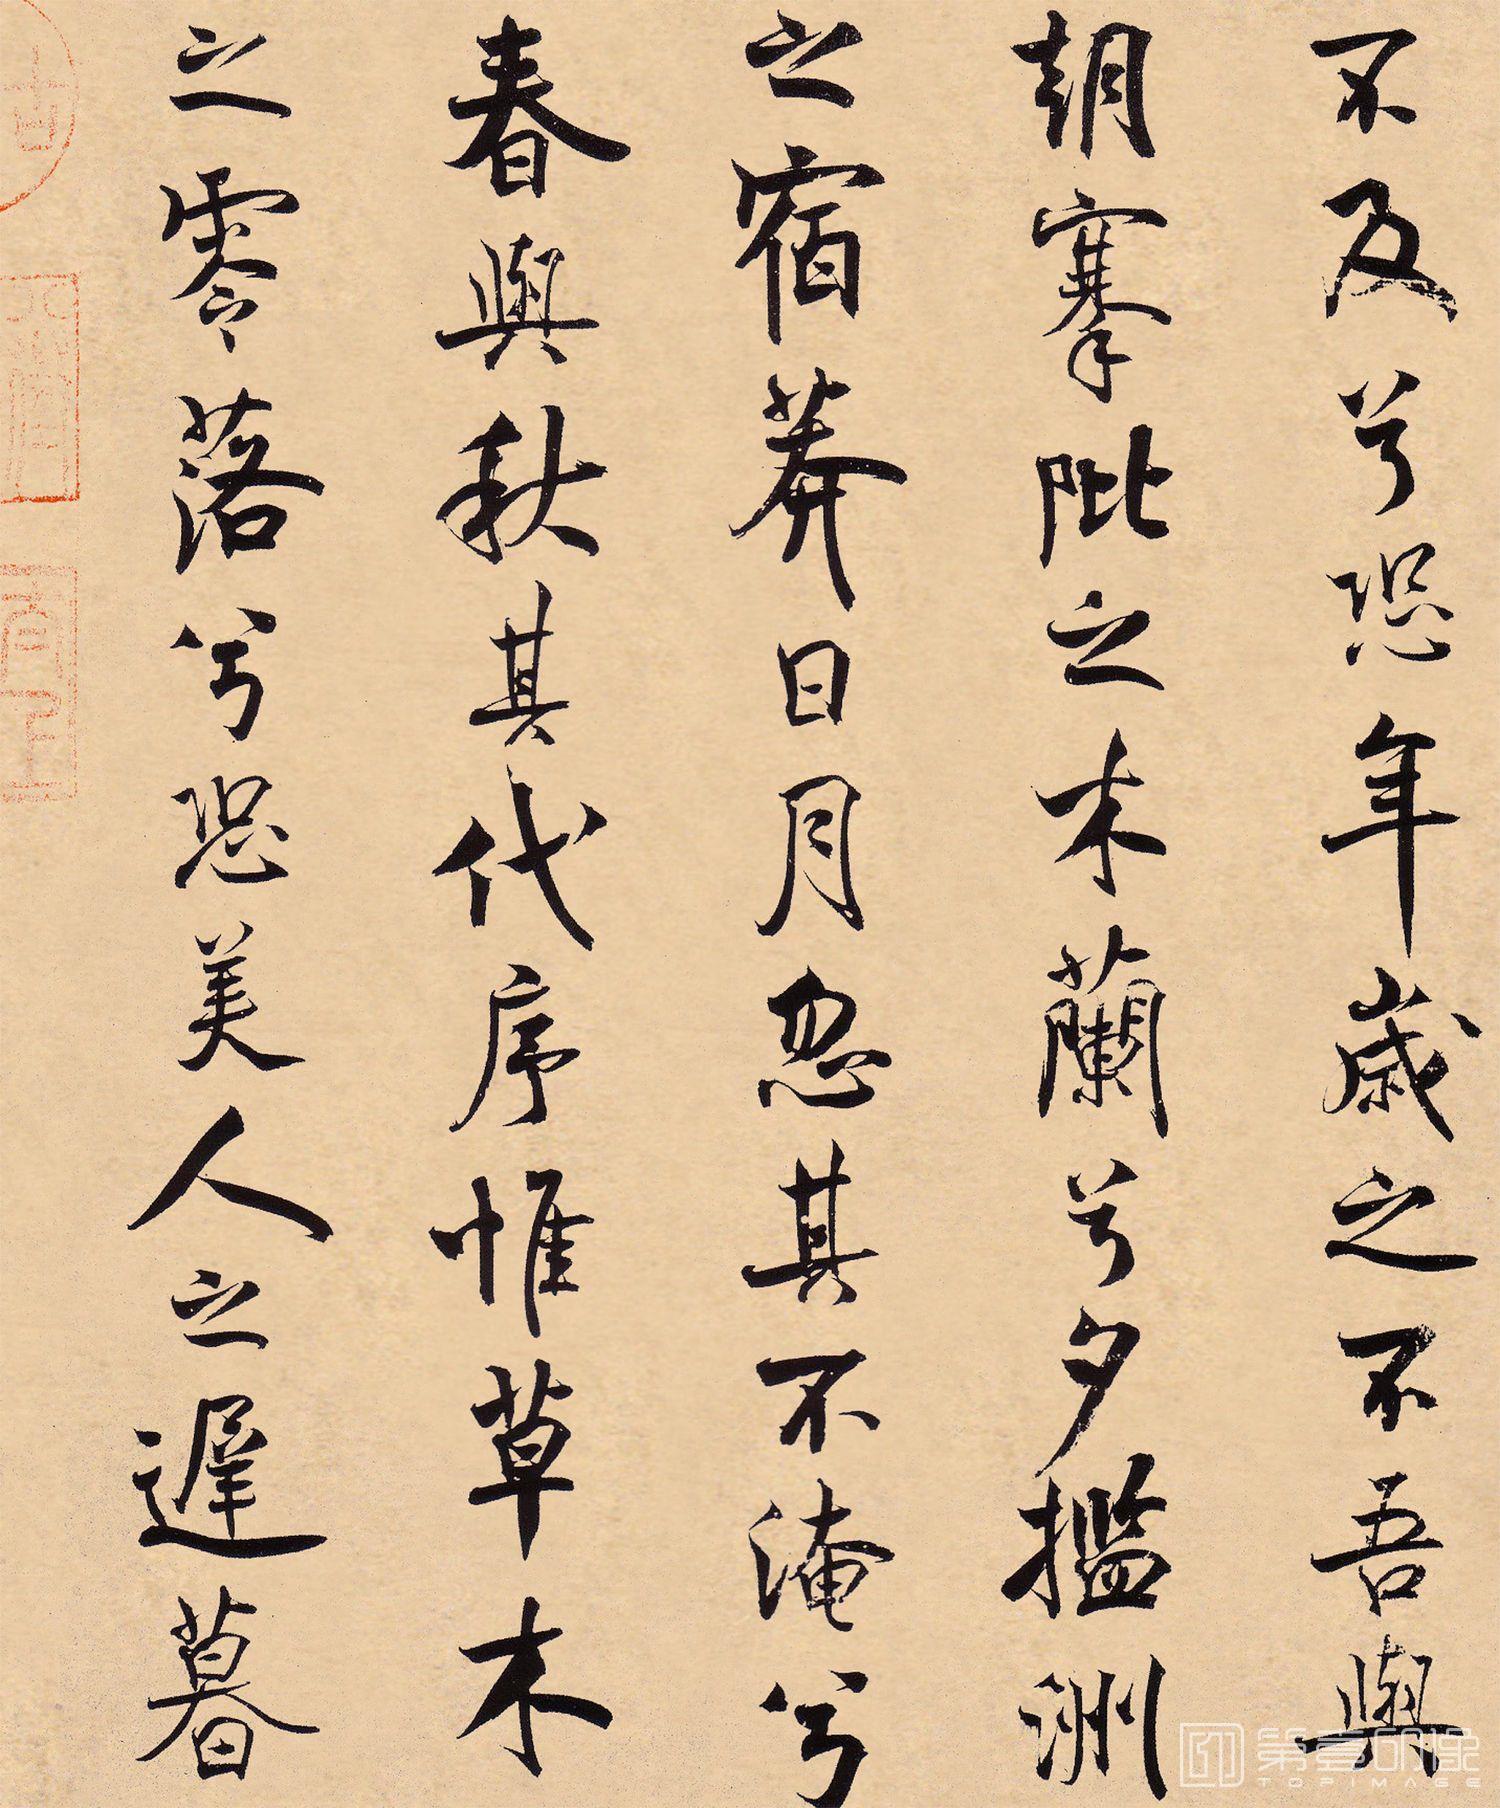 不及兮恐年歲之不吾與
朝搴阰之木蘭兮夕擥洲
之宿莽日月忽其不淹兮
春與秋其代序惟草木
之零落兮恐美人之遲暮
第壹印像
TOPIMAGE